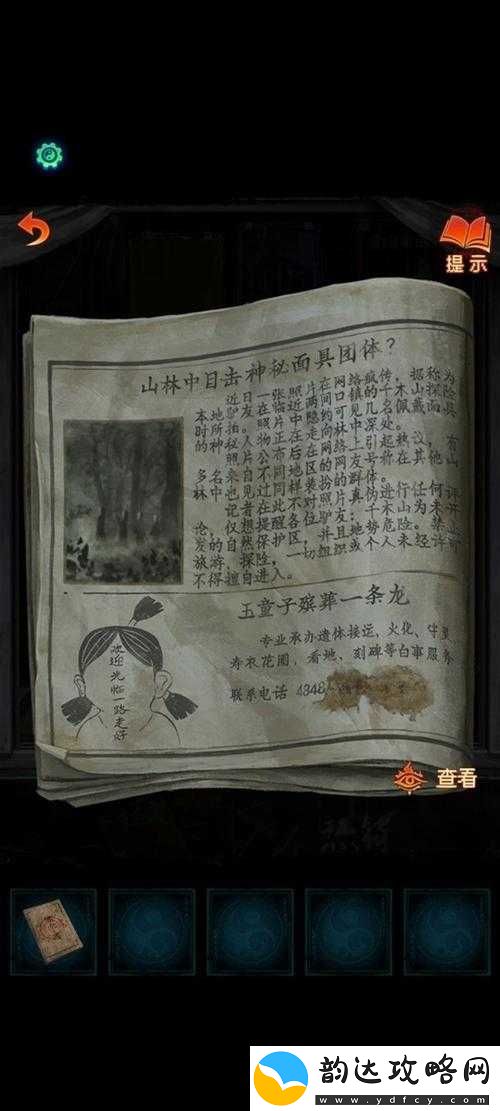 提示
山林中目击神秘面具团体?
近日一张照片在网络疯传，据称为
本地驴友在临近两间口镇的千木山探险
时所拍。照片中隐约可见几名佩戴面具
的神秘人物正在走向林中深处。
照片公布后在网络上引起热议，有
多名来自不同地区的网友号称在其他山
林中也见过同样装扮的群体。
记者想在此不对照片真伪进行任何评
论，仅提醒各位驴友：千木山为未开
发的自然保护区，并且地势危险。禁止
旅游、探险，一切组织或个人未经许可
不得擅自进入。
玉童子殡葬一条龙
专业承办遗体接运、火化、守灵
寿衣花圈、看地、刻碑等白事服务
联系电话 4348-
欢迎光临一路走好
查看
韵达攻略网
www.ydfcy.com